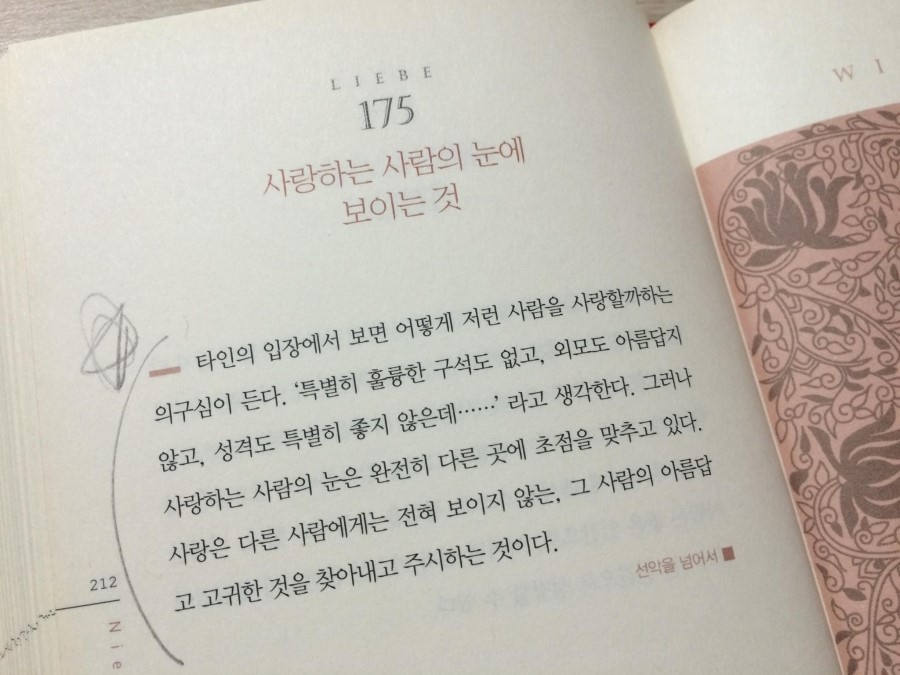 LIEBE
175
사랑하는 사람의 눈에
보이는 것
타인의 입장에서 보면 어떻게 저런 사람을 사랑할까하는
의구심이 든다. ‘특별히 훌륭한 구석도 없고, 외모도 아름답지
않고, 성격도 특별히 좋지 않은데……’ 라고 생각한다. 그러나
사랑하는 사람의 눈은 완전히 다른 곳에 초점을 맞추고 있다.
사랑은 다른 사람에게는 전혀 보이지 않는, 그 사람의 아름답
고 고귀한 것을 찾아내고 주시하는 것이다.
선악을 넘어서
212
Nie
WI